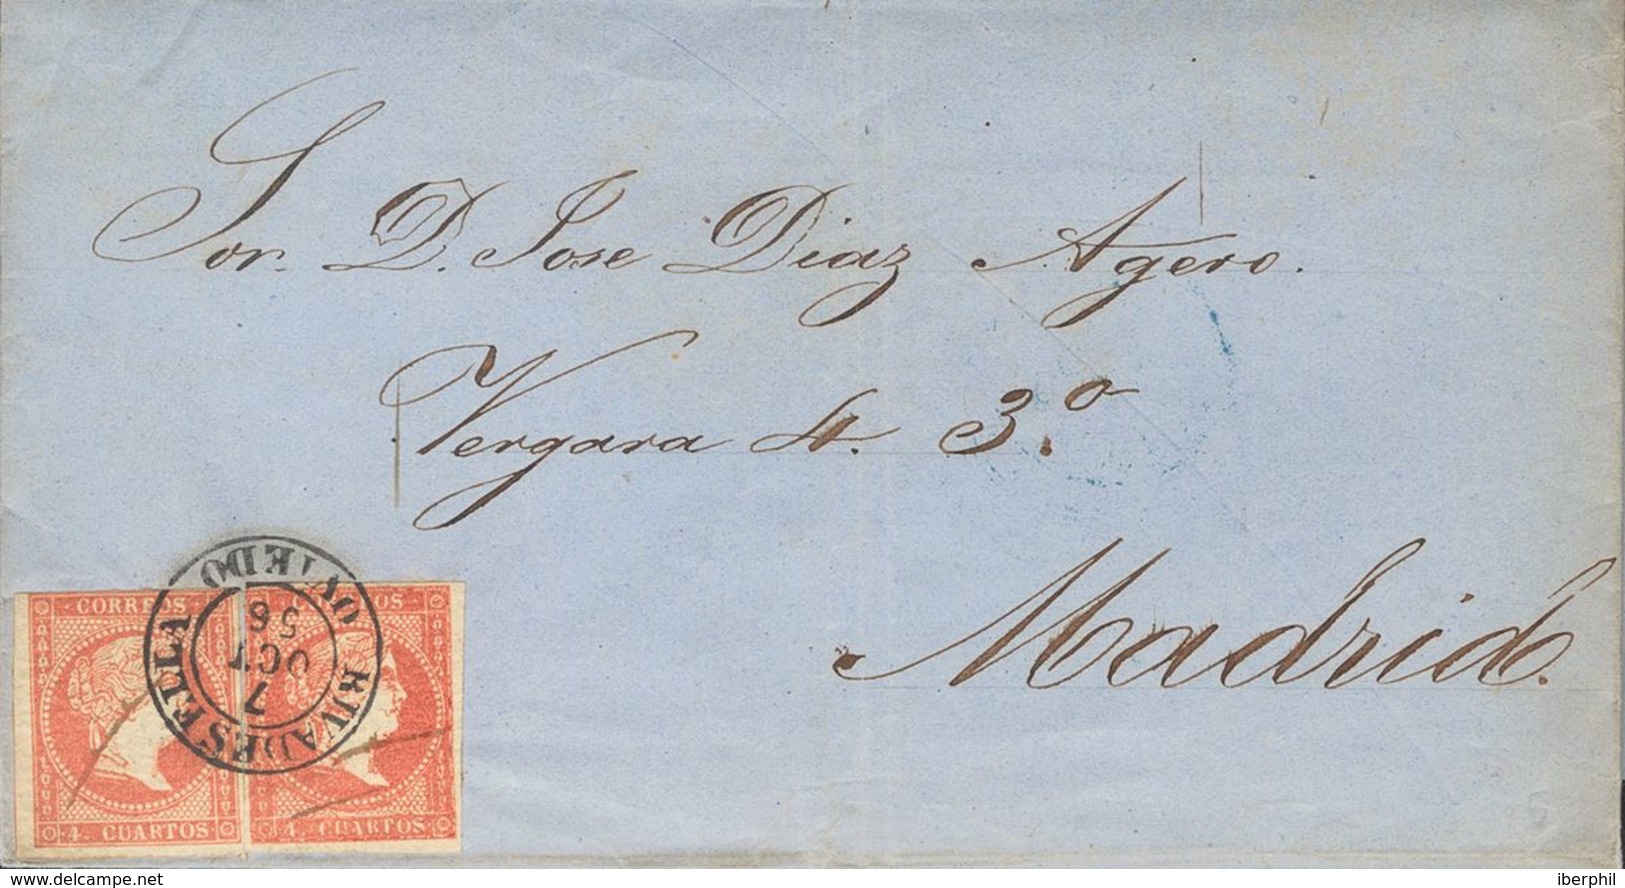 Sor. D. Jose Diaz Agero.
Vergara 4. 3.º
Madrid.
RIVADESELLA OVIEDO
7
OCT
56
CORREOS
4. CUARTOS
CORREOS
4. CUARTOS
www.delcampe.net
iberphil